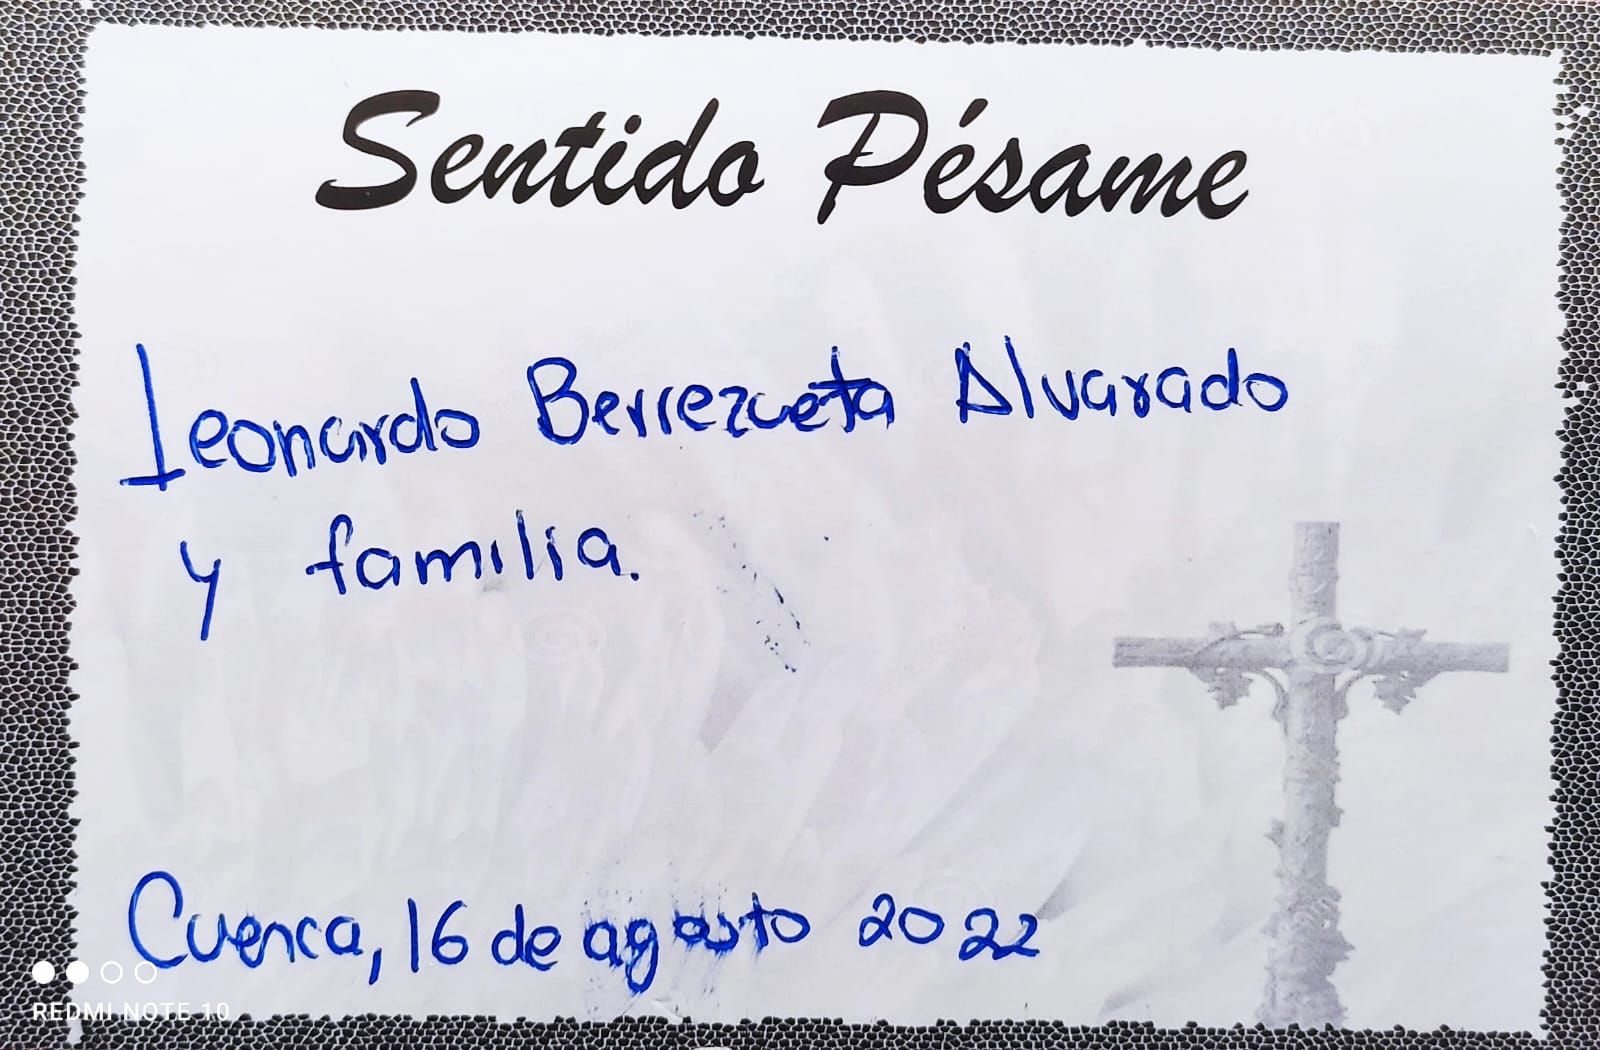 Sentido Pésame
Leonardo Berrezueta Alvarado
y familia.
Cuenca, 16 de agosto 2022
REDMI NOTE 10